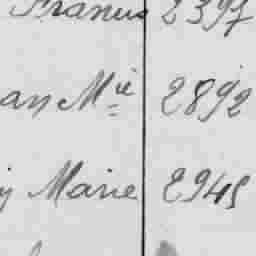 Francis 2397
an Mie 2892
y Marie 2945